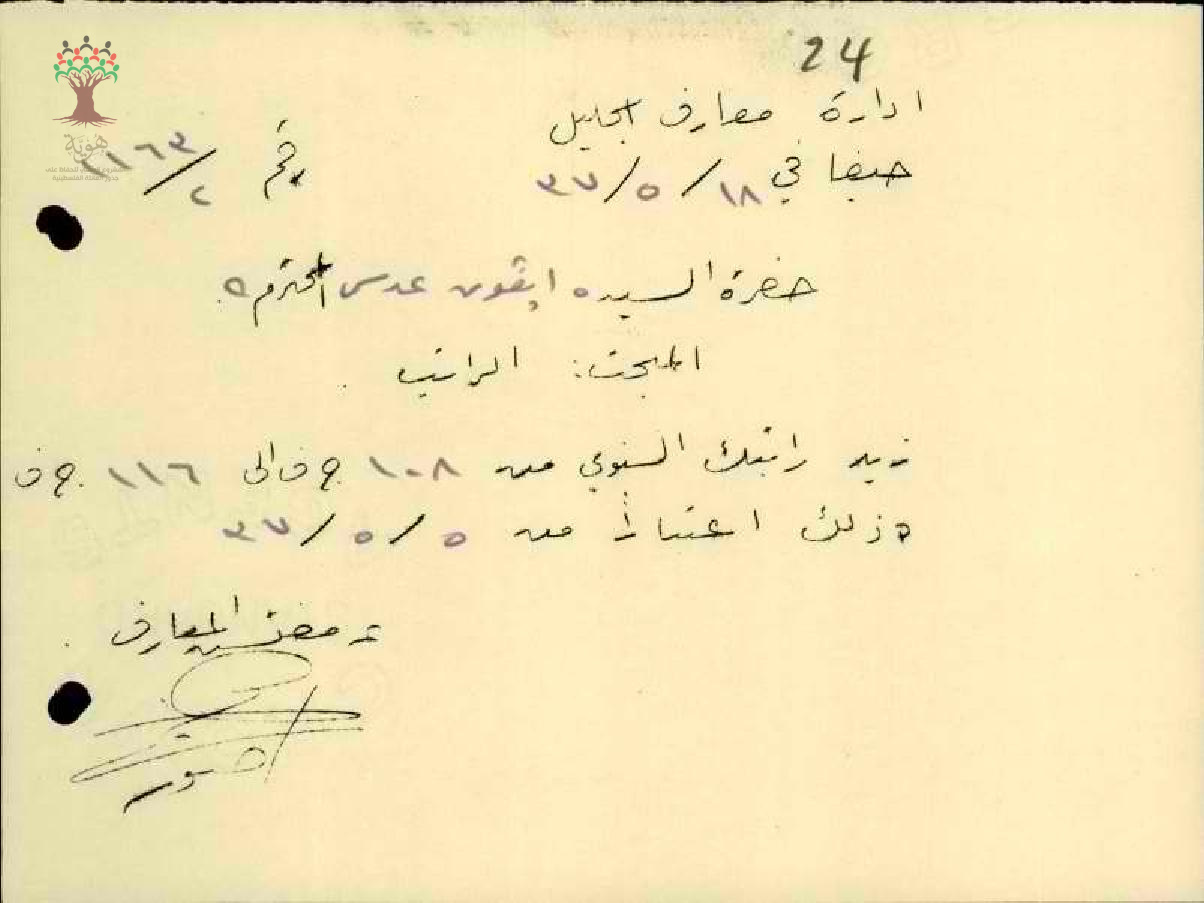 24
ادارة معارف الجليل
حيفا في ١٨/٥/٣٧ رقم ١١٦٣/٢
هوية
حضرة السيده عدس المحترمه
المبحث: الراتب
زيد راتبك السنوي من ١٠٨ ج ف الى ١١٦ ج ف
وذلك اعتباراً من ٥/٥/٣٧
ع مفتش المعارف